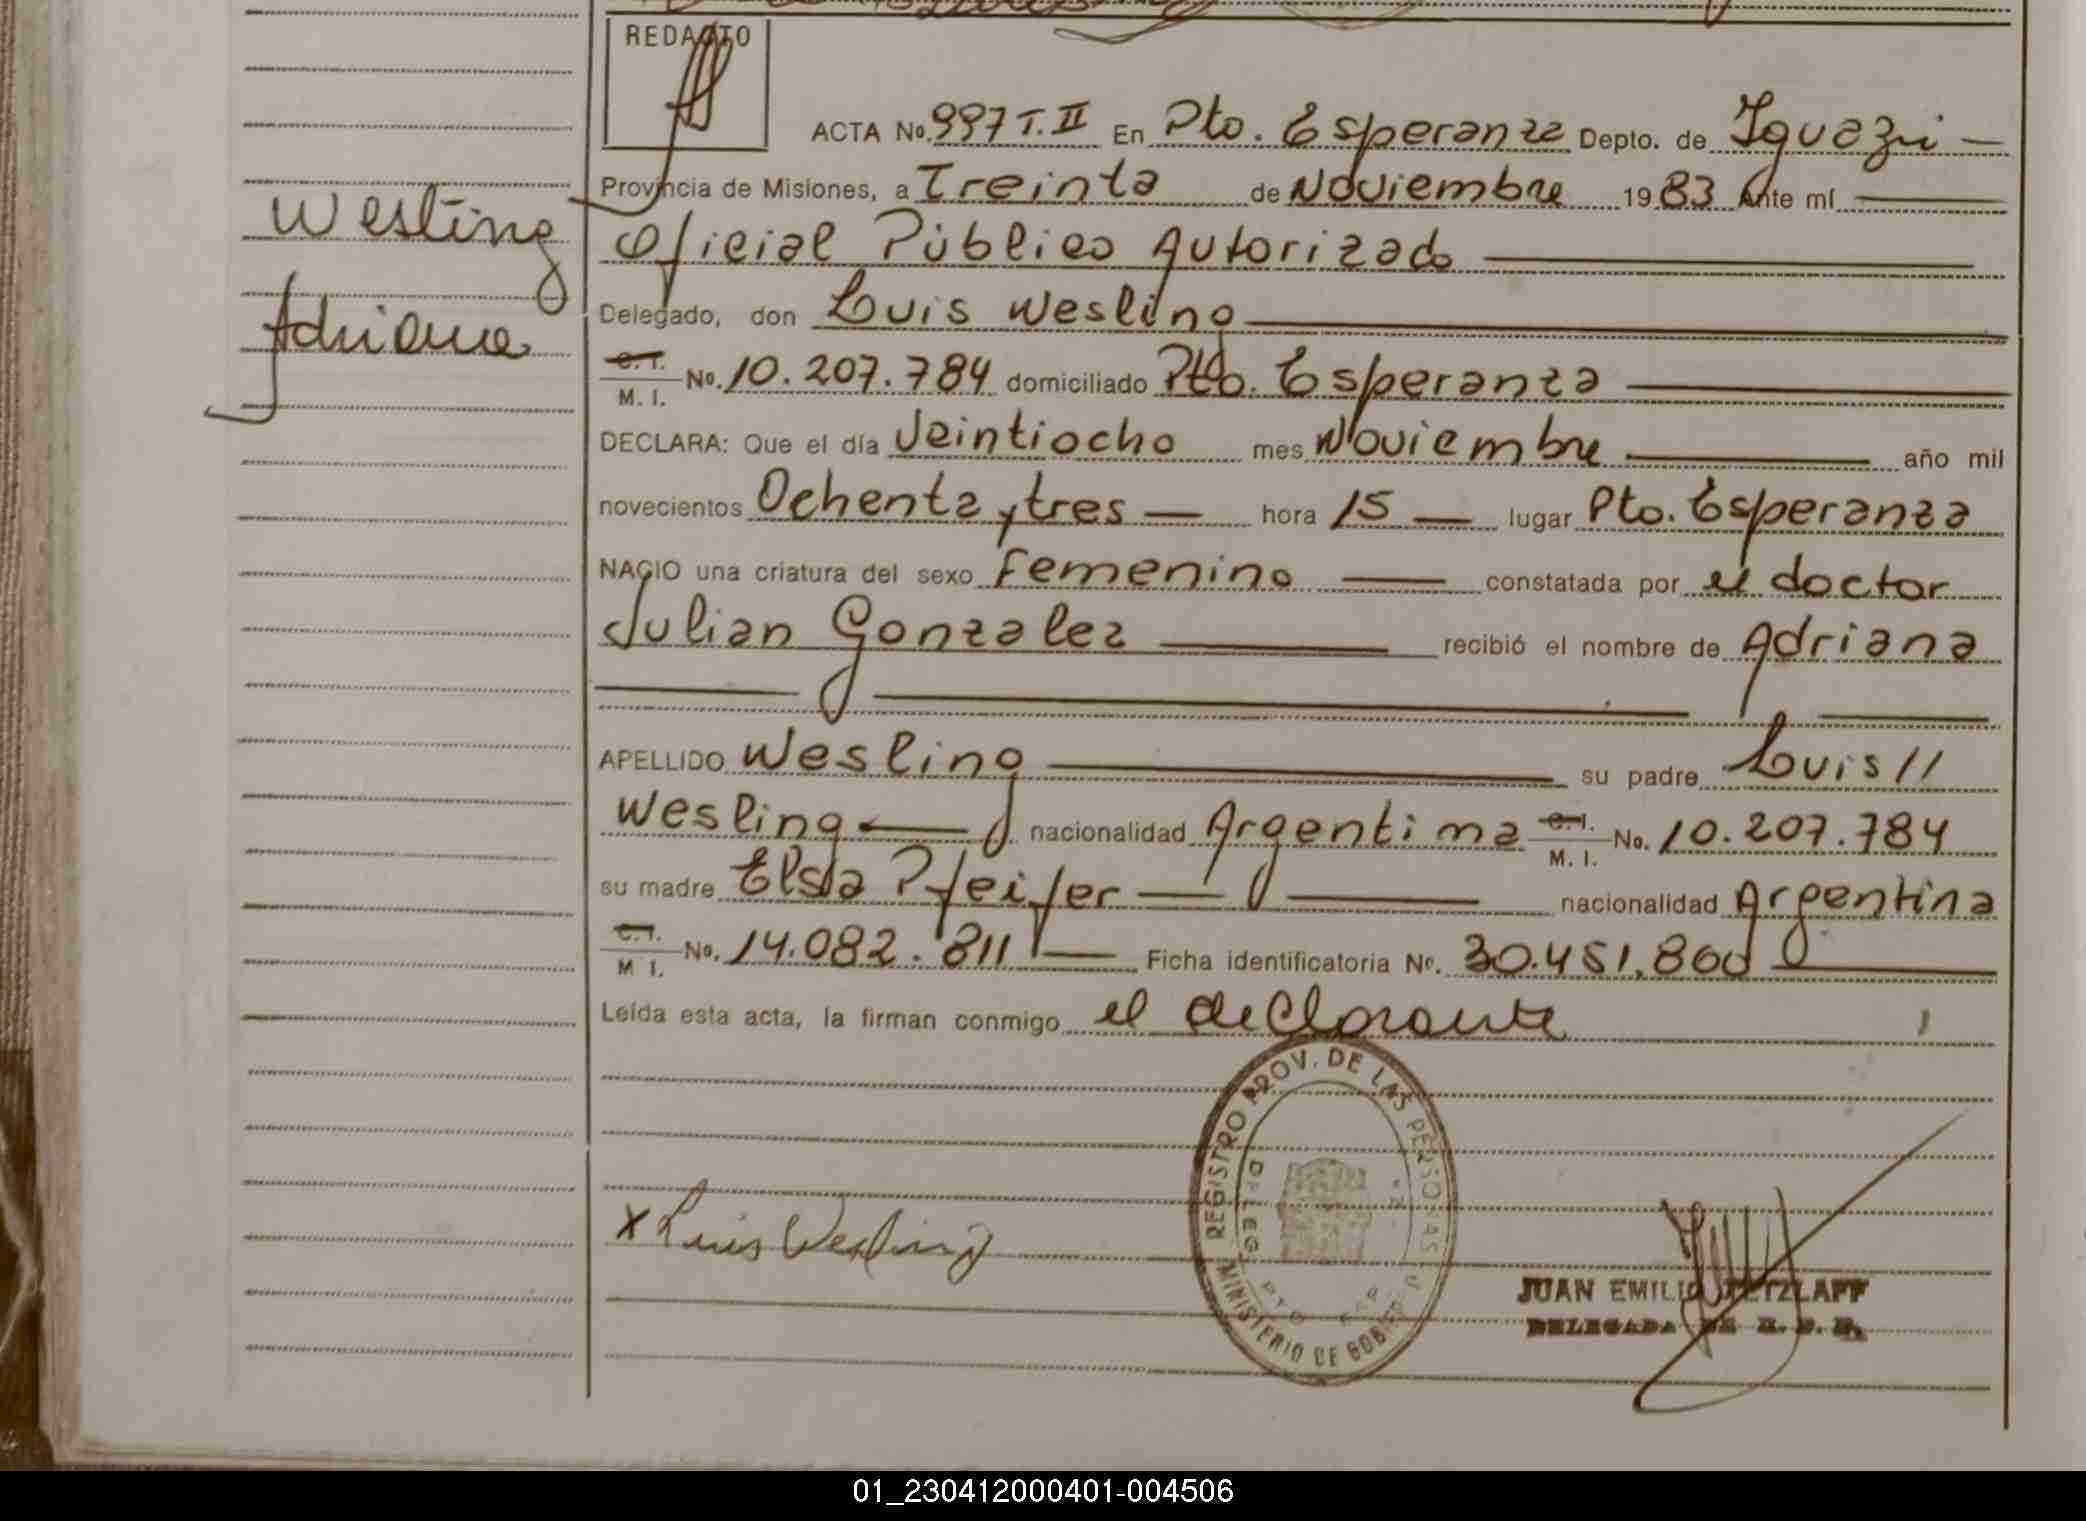 REDACTO
ACTA No. 997 T. II En Pto. Esperanza Depto. de Iguazú —
Provincia de Misiones, a Treinta de Noviembre 1983 Ante mí
Oficial Público Autorizado
Westing
Delegado, don Luis Wesling
Adriana
C. I.
M. I. No. 10.207.784 domiciliado Pto. Esperanza
DECLARA: Que el día Veintiocho mes Noviembre año mil
novecientos Ochenta y tres — hora 15 — lugar Pto. Esperanza
NACIO una criatura del sexo Femenino — constatada por el doctor
Julian Gonzalez recibió el nombre de Adriana
APELLIDO Wesling su padre Luis //
Wesling — nacionalidad Argentina C. I. M. I. No. 10.207.784
su madre Elsa Pfeifer — nacionalidad Argentina
C. I.
M I. No. 14.082.811 — Ficha identificatoria No. 30.451.860
Leída esta acta, la firman conmigo el declarante
REGISTRO PROV. DE LAS PERSONAS
DELEG. PTO ESP
MINISTERIO DE GOBIER
x Luis Wesling
JUAN EMILIO JETZLAFF
DELEGADA DE R. P. P.
01_230412000401-004506